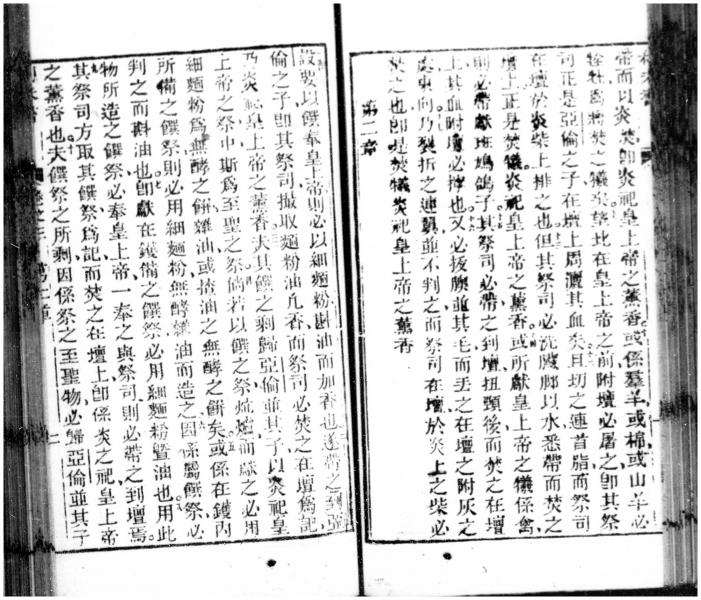 帝而以炎焚卽炎祀皇上帝之薰香或係羣羊或棉或山羊必
牲牡爲將焚之犧北在皇上帝之前附壇必屠之卽其祭
司正是亞倫之子在壇上周灑其血矣且切之連首脂而祭司
在壇於炎柴上排之也但其祭司必洗臟腳以水悉帶而焚之
壇上正是焚犧炎祀皇上帝之薰香或所獻皇上帝之犧係禽
則必帶獻班鳩鴿子其祭司必帶之到壇扭頸後而焚之在壇
上其血附壇必搾也又必拔膆並其毛而丟之在壇之附灰之
處東向乃裂折之連翼並不判之而祭司在壇於炎上之柴必
焚之也卽是焚犧炎祀皇上帝之薰香
第二章
設要以饌奉皇上帝則必以細麵粉斟油而加香也遂帶之到亞
倫之子卽其祭司撮取麵粉油凡香而祭司必焚之在壇爲記
乃炎祀皇上帝之薰香夫其饌之剩歸亞倫並其子以炎祀皇
上帝之祭中斯爲至聖之祭倘若以饌之祭炕爐而獻之必用
細麵粉爲無酵之餅雜油或搽油之無酵之餅矣或係在鑊內
所備之饌祭則必用細麵粉無酵雜油而造之因係屬饌祭必
判之而斟油也卽獻在鑊備之饌祭必用細麵粉曁油也用此
物所造之饌祭必奉皇上帝一奉之與祭司則必帶之到壇焉
其祭司方取其饌祭爲記而焚之在壇上卽係炎之祀皇上帝
之薰香也夫饌祭之所剩因係祭之至聖物必歸亞倫並其子